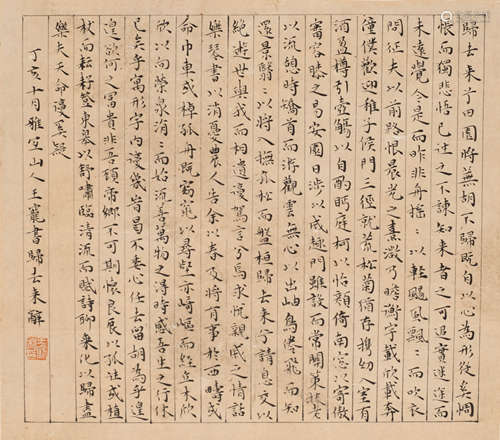 歸去来兮田園將蕪胡不歸既自以心為形役奚惆
悵而獨悲悟已往之不諫知来者之可追實迷途而
未遠覺今是而昨非舟搖〻以輕颺風飄〻而吹衣
問征夫以前路恨晨光之熹微乃瞻衡宇載欣載奔
僮僕歡迎稚子候門三徑就荒松菊猶存携幼入室有
酒盈樽引壺觴以自酌眄庭柯以怡顏倚南窓以寄傲
審容膝之易安園日涉以成趣門雖設而常関策扶老
以流憩時矯首而遐觀雲無心以出岫鳥倦飛而知
還景翳〻以將入撫孤松而盤桓歸去来兮請息交以
絕遊世與我而相遺復駕言兮焉求悅親戚之情話
樂琴書以消憂農人告余以春及將有事於西疇或
命巾車或棹孤舟既窈窕以尋壑亦崎嶇而經丘木欣
欣以向榮泉涓〻而始流善萬物之得時感吾生之行休
已矣乎寓形宇内復幾旹曷不委心任去留胡為乎遑
遑欲何之富貴非吾願帝鄉不可期懷良辰以孤往或植
杖而耘耔登東皋以舒嘯臨清流而賦詩聊乘化以歸盡
樂夫天命復奚疑
丁亥十月雅宜山人王寵書歸去来辭